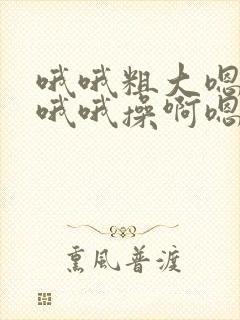 哦哦粗大嗯
哦哦操啊嗯
熏风普渡